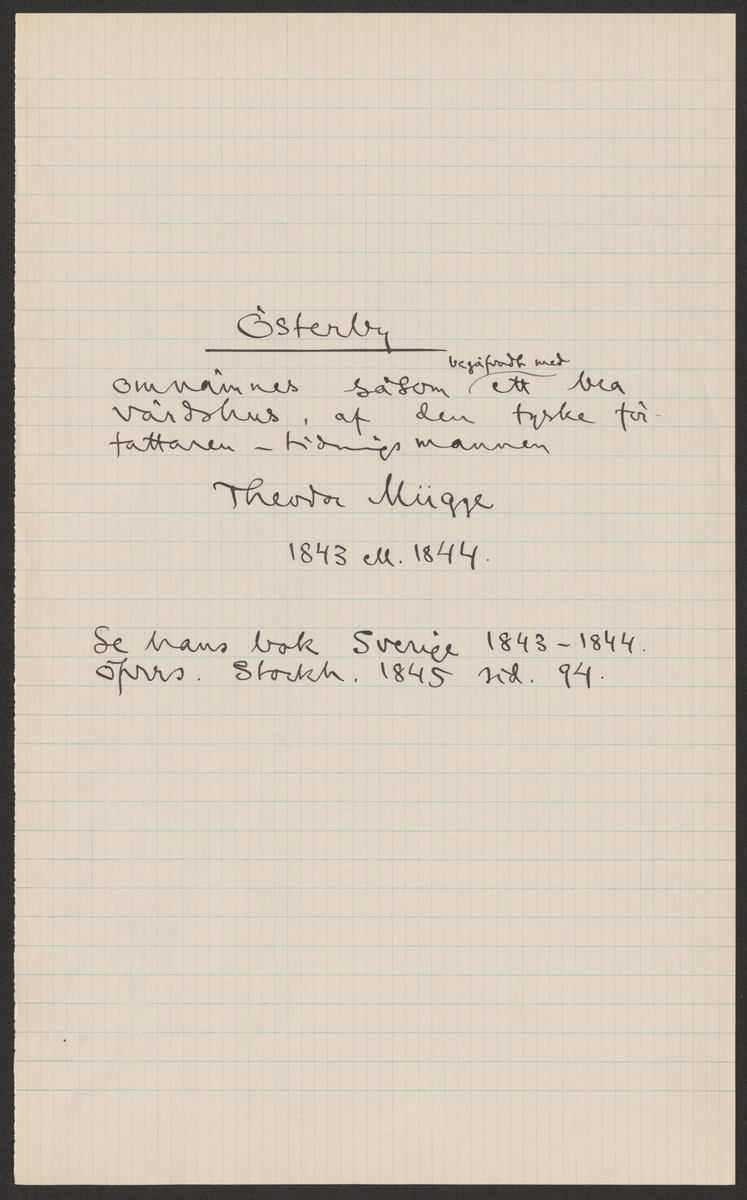 Österby
begåfvadt med
omnämnes såsom ett bra
värdshus, af den tyske för-
fattaren – tidningsmannen
Theodor Mügge
1843 ell. 1844.
Se hans bok Sverige 1843–1844.
Öfvers. Stockh. 1845 sid. 94.